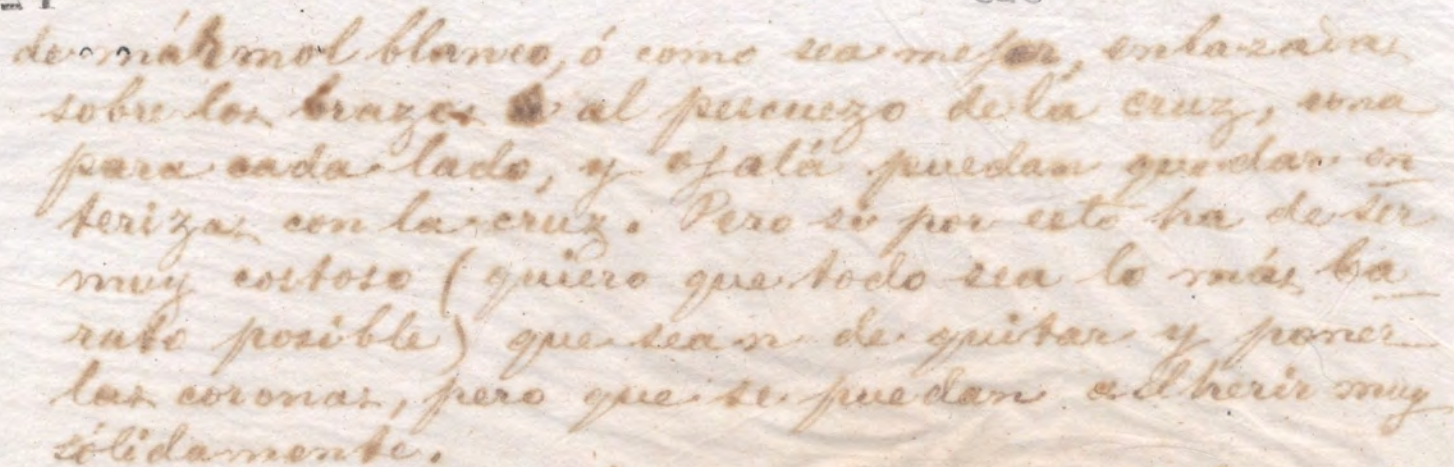 de mármol blanco, ó como sea mejor, enlazadas
sobre los brazos al pescuezo de la cruz, una
para cada lado, y ojalá puedan quedar en
terizas con la cruz. Pero si por esto ha de ser
muy costoso (quiero que todo sea lo más ba
rato posible) que sean de quitar y poner
las coronas, pero que se puedan adherir muy
sólidamente.